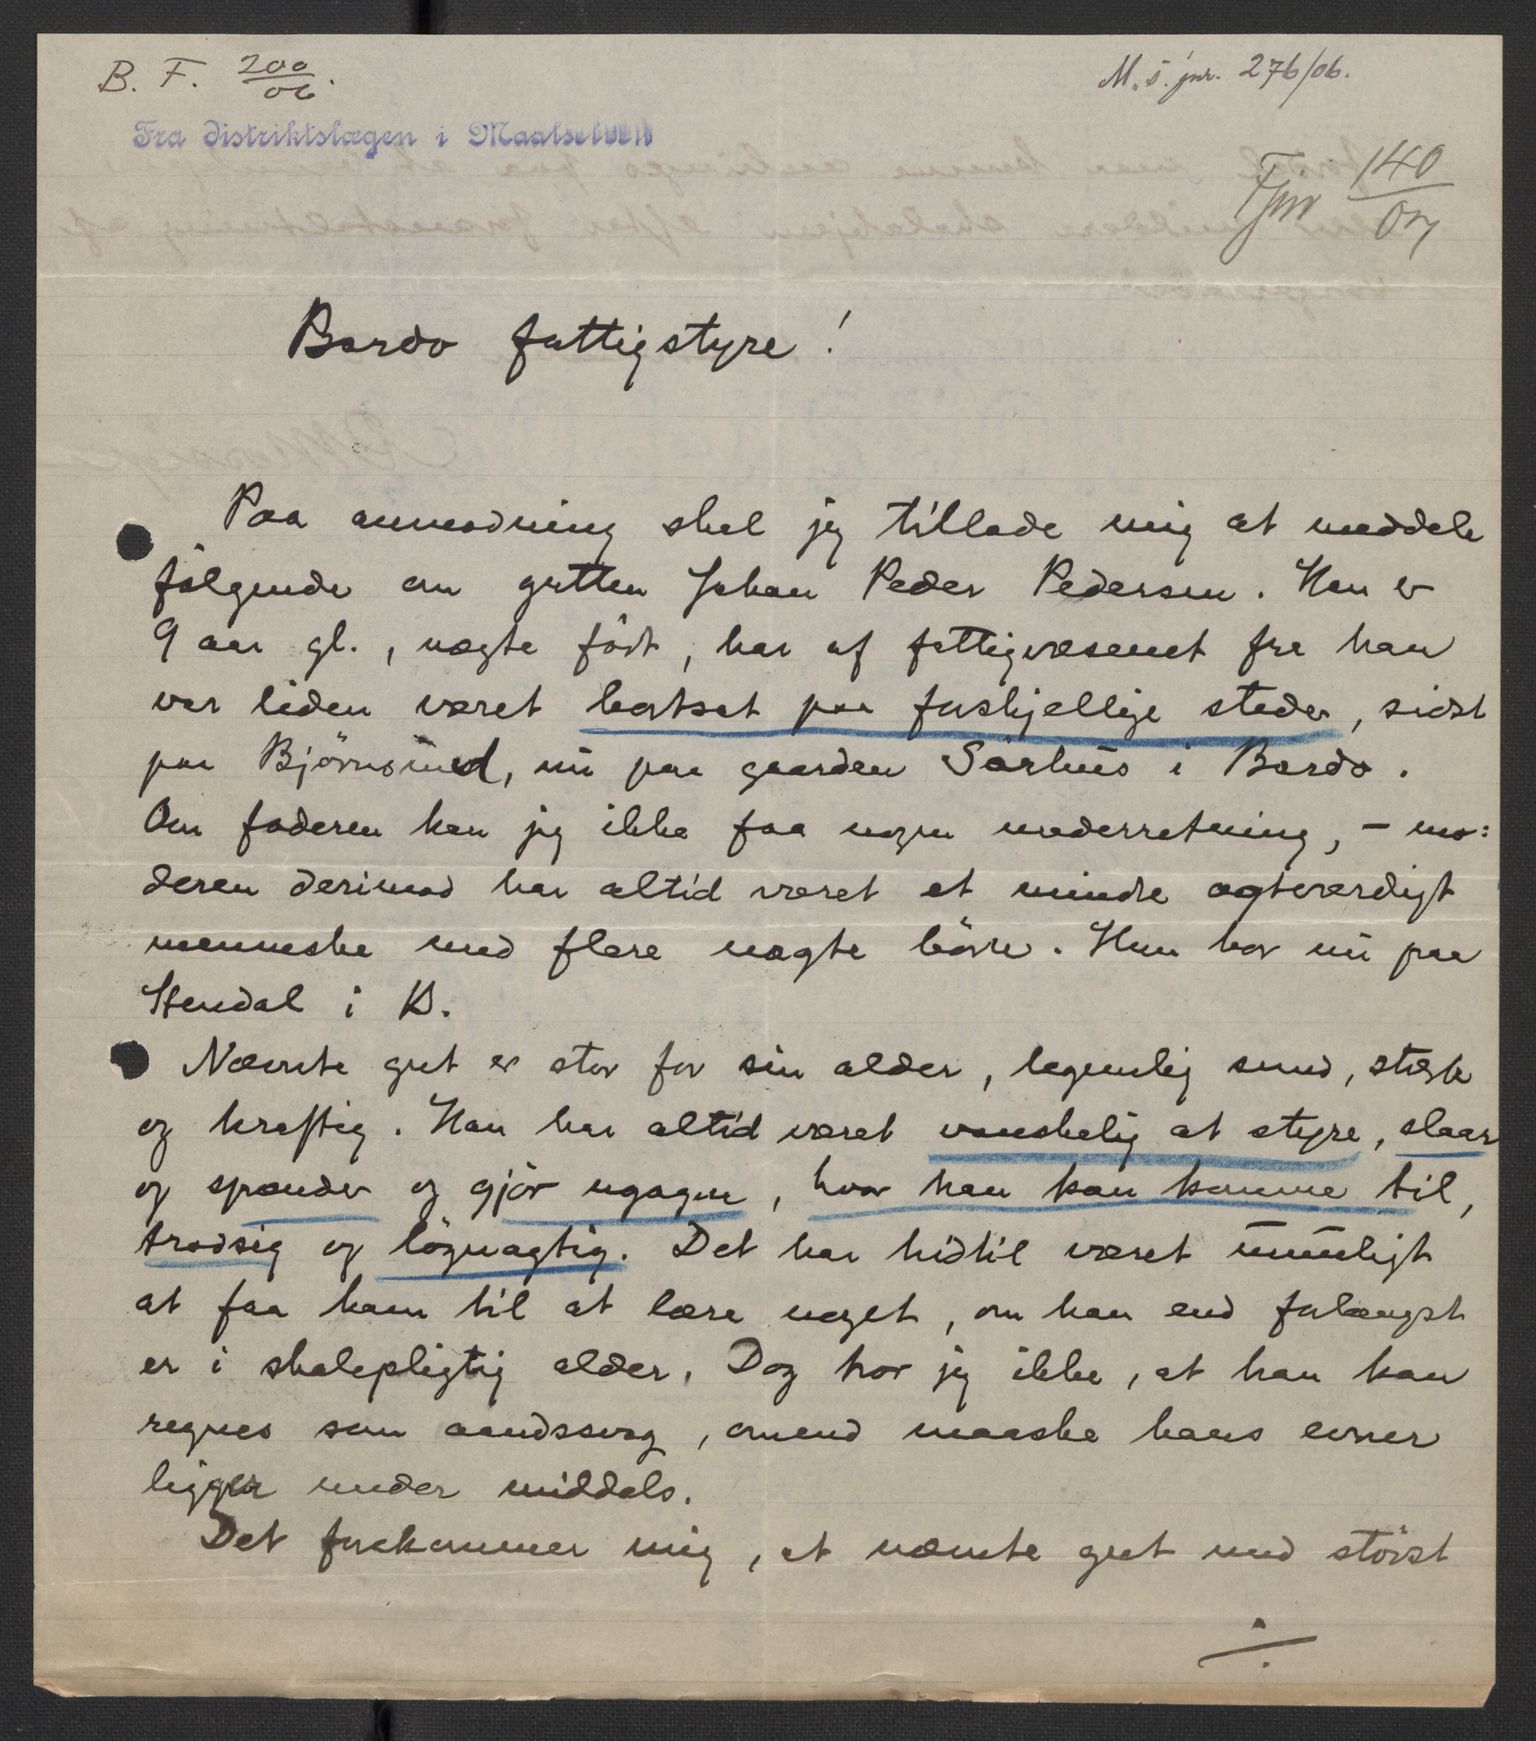 B. F. 200/06.
M. s. jnr. 276/06.
Fra distriktslægen i Maalselven
Fjnr 140/07
Bardo fattigstyre!
Paa anmodning skal jeg tillade mig at meddele
følgende om gutten Johan Peder Pedersen. Han er
9 aar gl., uægte født, har af fattigvæsenet fra han
var liden været bortsat paa forskjellige steder, sidst
paa Bjørnsund, nu paa gaarden Sørhus i Bardo.
Om faderen kan jeg ikke faa nogen underretning, – mo=
deren derimod har altid været et mindre agtværdigt
menneske med flere uægte børn. Hun bor nu paa
Stendal i B.
Nævnte gut er stor for sin alder, legemlig sund, stærk
og kraftig. Han har altid været vanskelig at styre, slaar
og spænder og gjør ugagn, hvor han kan komme til,
trodsig og løgnagtig. Det har hidtil været umuligt
at faa ham til at lære noget, om han end forlængst
er i skolepligtig alder. Dog tror jeg ikke, at han kan
regnes som aandssvag, omend maaske hans evner
ligger under middels.
Det forekommer mig, at nævnte gut med størst
./.